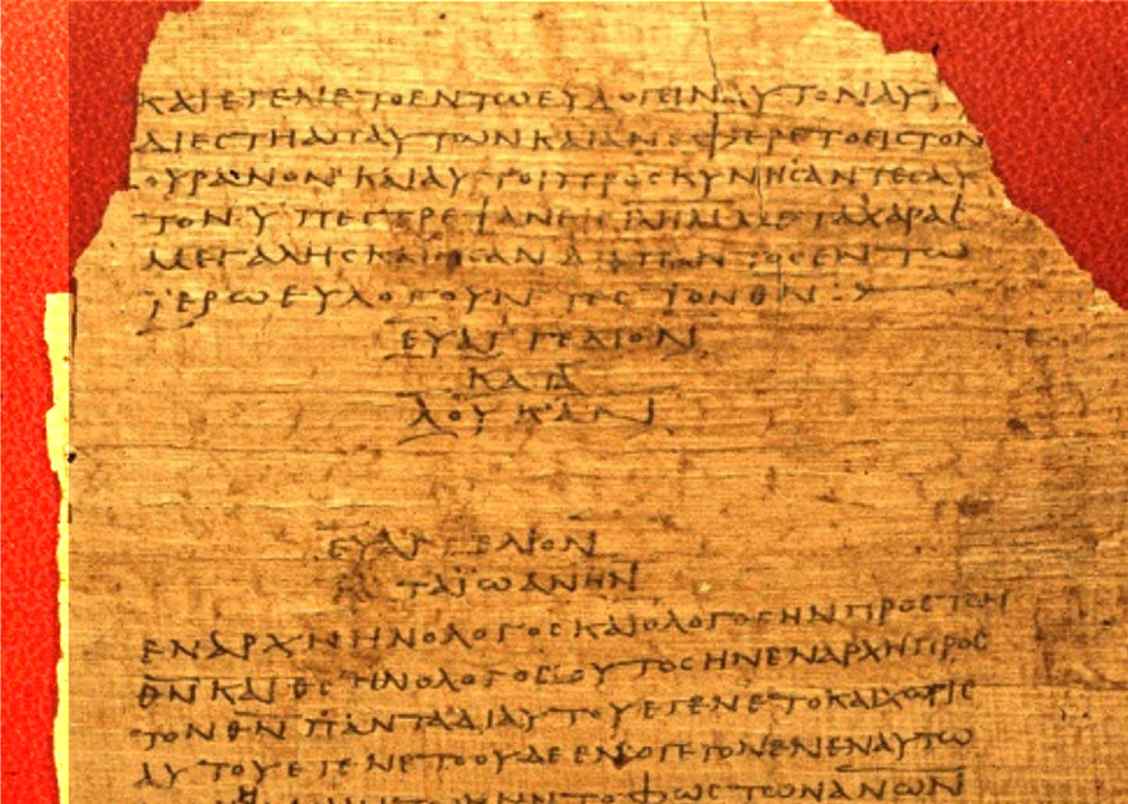 ΚΑΙΕΓΕΝΕΤΟΕΝΤΩΕΥΛΟΓΕΙΝΑΥΤΟΝΑΥ
ΔΙΕϹΤΗΑΠΑΥΤΩΝΚΑΙΑΝΕΦΕΡΕΤΟΕΙϹΤΟΝ
ΟΥΡΑΝΟΝΚΑΙΑΥΤΟΙΠΡΟϹΚΥΝΗϹΑΝΤΕϹΑΥ
ΤΟΝΥΠΕϹΤΡΕΨΑΝΕΙϹΙΛΗΜΜΕΤΑΧΑΡΑϹ
ΜΕΓΑΛΗϹΚΑΙΗϹΑΝΔΙΑΠΑΝΤΟϹΕΝΤΩ
ΙΕΡΩΕΥΛΟΓΟΥΝΤΕϹΤΟΝΘΝ
ΕΥΑΓΓΕΛΙΟΝ
ΚΑΤΑ
ΛΟΥΚΑΝ
ΕΥΑΓΓΕΛΙΟΝ
ΚΑΤΑΙΩΑΝΗΝ
ΕΝΑΡΧΗΗΝΟΛΟΓΟϹΚΑΙΟΛΟΓΟϹΗΝΠΡΟϹΤΟΝ
ΘΝΚΑΙΘϹΗΝΟΛΟΓΟϹΟΥΤΟϹΗΝΕΝΑΡΧΗΠΡΟϹ
ΤΟΝΘΝΠΑΝΤΑΔΙΑΥΤΟΥΕΓΕΝΕΤΟΚΑΙΧΩΡΙϹ
ΑΥΤΟΥΕΓΕΝΕΤΟΟΥΔΕΕΝΟΓΕΓΟΝΕΝΕΝΑΥΤΩ
ΗΝΤΟΦΩϹΤΩΝΑΝΩΝ